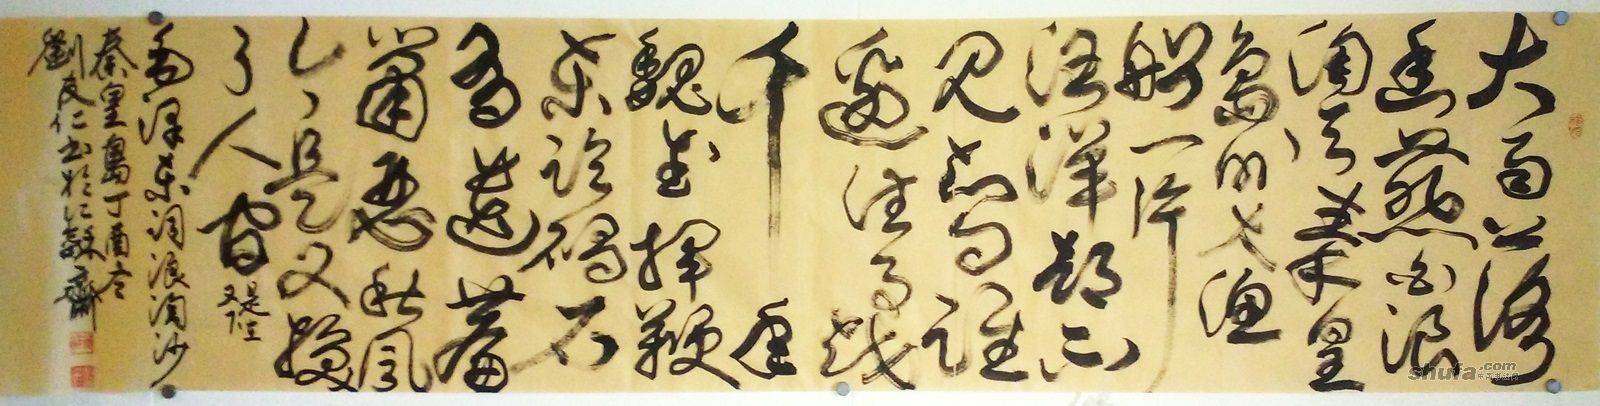 大雨落
幽燕白浪
滔天秦皇
島外打渔
船一片
汪洋都不
见知向谁
邊往事越
千年
魏武挥鞭
东临碣石
有遗篇
萧瑟秋风
今是又换
了人间
毛泽东词浪淘沙
秦皇島丁酉冬
劉友仁书於仁龢齋
shufa.com